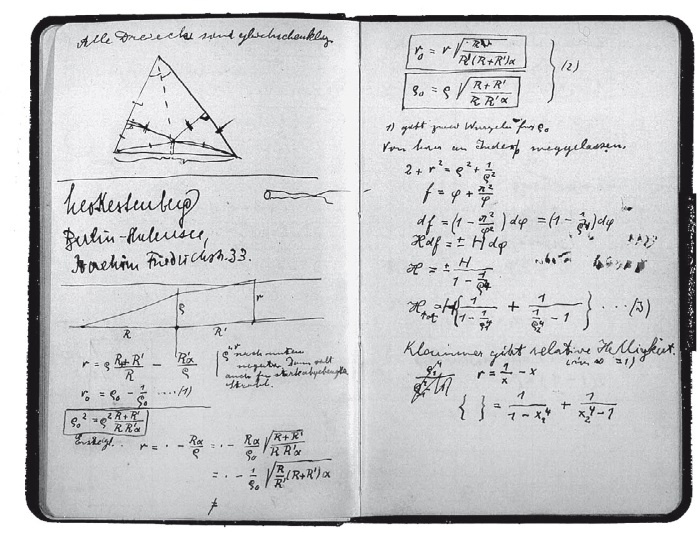 Alle Dreiecke sind gleichschenklig
Leo Kestenberg
Berlin-Halensee,
Joachim Friedrichstr. 33.
ρ
r
R
R'
r = ρ (R+R')/R − Rα/ρ
"r" nach unten
negativ. Dann gilt
auch für stark abgebeugte
Strahl.
r₀ = ρ₀ − 1/ρ₀ .... (1)
ρ₀² = ρ² (R+R')/(R R'α)
r = · − Rα/ρ = · − Rα/ρ₀ √((R+R')/(R R'α))
= · − 1/ρ₀ √(R/R' (R+R')α)
r₀ = r √(R/(R'(R+R')α))
ρ₀ = ρ √((R+R')/(R R'α)) } (2)
1) gibt zwei Wurzeln für ρ₀
Von hier an Index weggelassen.
2 + r² = ρ² + 1/ρ²
f = φ + π²/φ
df = (1 − π²/φ²) dφ = (1 − 1/ρ⁴) dφ
H df = ± H dφ
H = ± H/(1 − 1/ρ⁴)
H_tot = H { 1/(1 − 1/ρ₁⁴) + 1/(1/ρ₂⁴ − 1) } ... (3)
Klammer gibt relative Helligkeit.
r = 1/x − x
{ } = 1/(1 − x₁⁴) + 1/(x₂⁴ − 1)